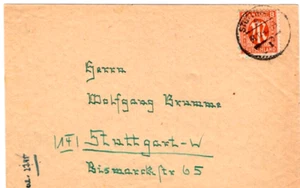 Herrn
Wolfgang Brumme
(14) Stuttgart-W
Bismarckstr 65